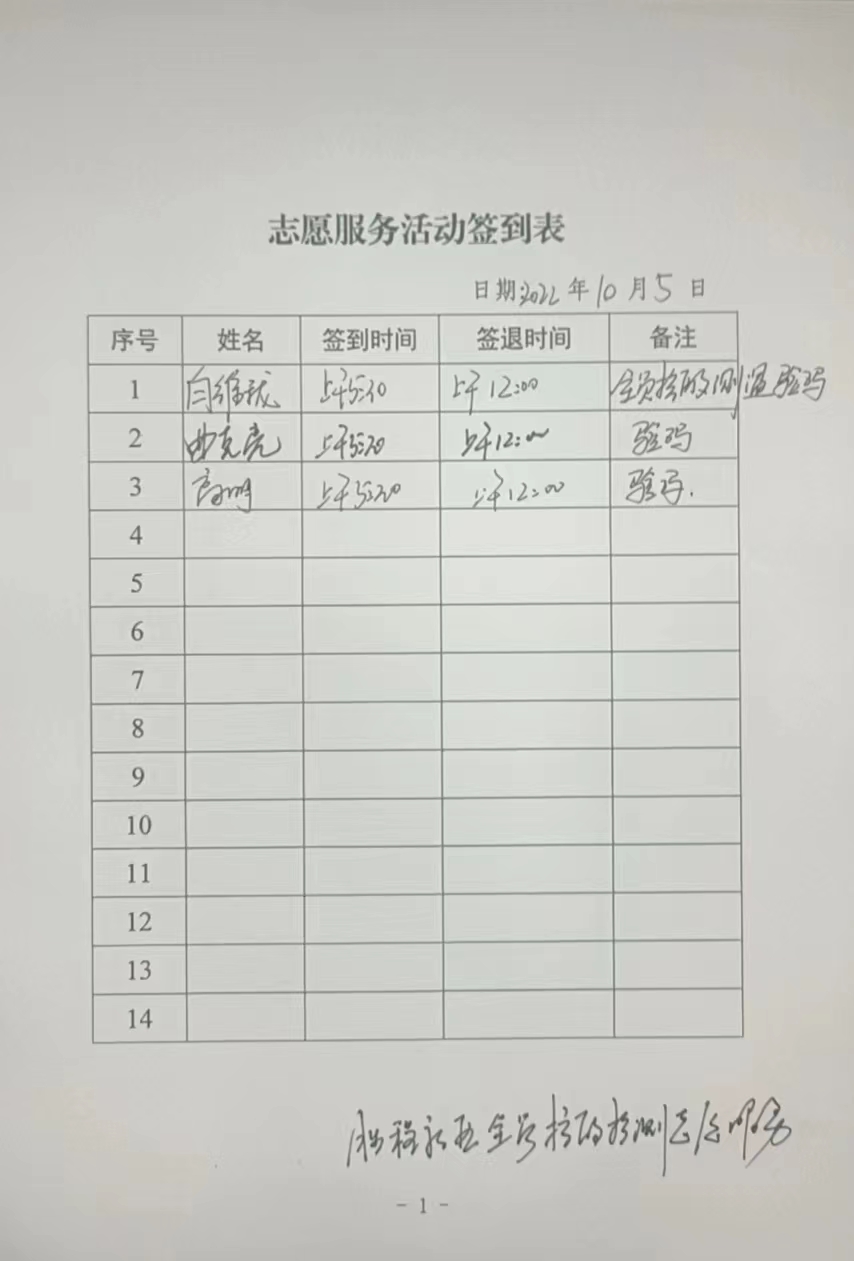 志愿服务活动签到表
日期:2022年10月5日
序号 姓名 签到时间 签退时间 备注
1 白维龙 上午5:30 上午12:00 全员核酸测温验码
2 曲克亮 上午5:30 上午12:00 验码
3 高明 上午5:30 上午12:00 验码.
4
5
6
7
8
9
10
11
12
13
14
全员核酸检测志愿服务
- 1 -